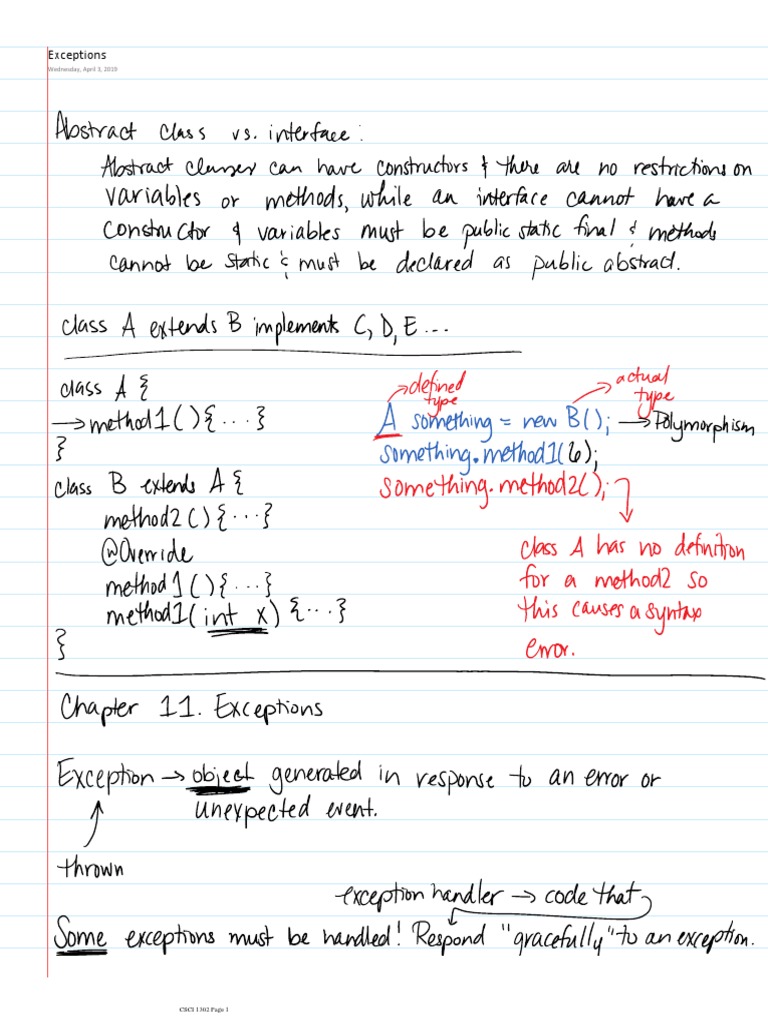 Exceptions
Wednesday, April 3, 2019
Abstract class vs. interface:
Abstract classes can have constructors & there are no restrictions on
variables or methods, while an interface cannot have a
constructor & variables must be public static final & methods
cannot be static & must be declared as public abstract.
class A extends B implements C, D, E...
class A {
→ method1(){...}
}
class B extends A {
method2(){...}
@Override
method1(){...}
method1(int x) {...}
}
defined
type
actual
type
A something = new B(); → Polymorphism
something.method1(6);
something.method2();
class A has no definition
for a method2 so
this causes a syntax
error.
Chapter 11. Exceptions
Exception → object generated in response to an error or
unexpected event.
thrown
exception handler → code that
Some exceptions must be handled! Respond "gracefully" to an exception.
CSCI 1302 Page 1